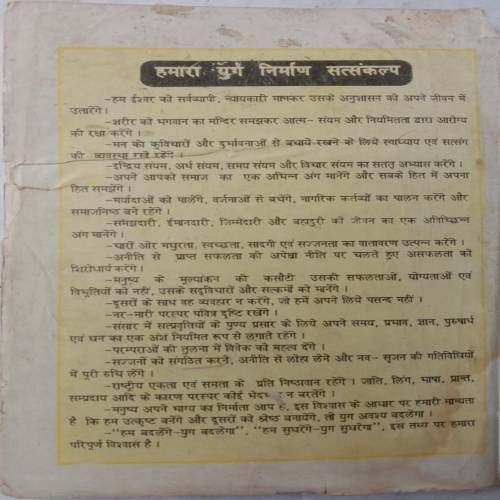 हमारा युग निर्माण सत्संकल्प
-हम ईश्वर को सर्वव्यापी, न्यायकारी मानकर उसके अनुशासन को अपने जीवन में
उतारेंगे।
-शरीर को भगवान का मन्दिर समझकर आत्म- संयम और नियमितता द्वारा आरोग्य
की रक्षा करेंगे।
-मन को कुविचारों और दुर्भावनाओं से बचाये रखने के लिये स्वाध्याय एवं सत्संग
की व्यवस्था रखे रहेंगे।
-इन्द्रिय संयम, अर्थ संयम, समय संयम और विचार संयम का सतत् अभ्यास करेंगे।
-अपने आपको समाज का एक अभिन्न अंग मानेंगे और सबके हित में अपना
हित समझेंगे।
-मर्यादाओं को पालेंगे, वर्जनाओं से बचेंगे, नागरिक कर्तव्यों का पालन करेंगे और
समाजनिष्ठ बने रहेंगे।
-समझदारी, ईमानदारी, जिम्मेदारी और बहादुरी को जीवन का एक अविच्छिन्न
अंग मानेंगे।
-चारों और मधुरता, स्वच्छता, सादगी एवं सज्जनता का वातावरण उत्पन्न करेंगे।
-अनीति से प्राप्त सफलता की अपेक्षा नीति पर चलते हुए असफलता को
शिरोधार्य करेंगे।
-मनुष्य के मूल्यांकन की कसौटी उसकी सफलताओं, योग्यताओं एवं
विभूतियों को नहीं, उसके सद्विचारों और सत्कर्मों को मानेंगे।
-दूसरों के साथ वह व्यवहार न करेंगे, जो हमें अपने लिये पसन्द नहीं।
-नर-नारी परस्पर पवित्र दृष्टि रखेंगे।
-संसार में सत्प्रवृत्तियों के पुण्य प्रसार के लिये अपने समय, प्रभाव, ज्ञान, पुरुषार्थ
एवं धन का एक अंश नियमित रूप से लगाते रहेंगे।
-परम्पराओं की तुलना में विवेक को महत्व देंगे।
-सज्जनों को संगठित करने, अनीति से लोहा लेने और नव- सृजन की गतिविधियों
में पूरी रुचि लेंगे।
-राष्ट्रीय एकता एवं समता के प्रति निष्ठावान रहेंगे। जाति, लिंग, भाषा, प्रान्त,
सम्प्रदाय आदि के कारण परस्पर कोई भेदभाव न बरतेंगे।
-मनुष्य अपने भाग्य का निर्माता आप है, इस विश्वास के आधार पर हमारी मान्यता
है कि हम उत्कृष्ट बनेंगे और दूसरों को श्रेष्ठ बनायेंगे, तो युग अवश्य बदलेगा।
-"हम बदलेंगे-युग बदलेगा", "हम सुधरेंगे-युग सुधरेगा", इस तथ्य पर हमारा
परिपूर्ण विश्वास है।